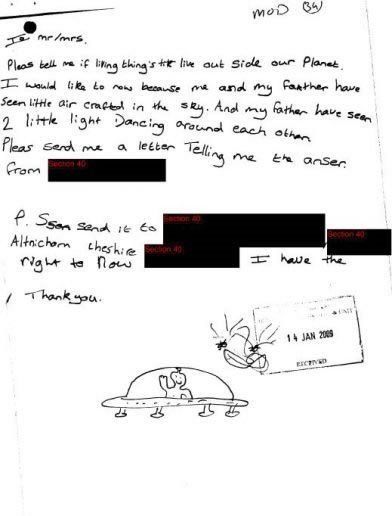 MOD 34
To mr/mrs.
Pleas tell me if living thing's live out side our Planet.
I would like to now because me and my farther have
seen little air crafted in the sky. And my father have seen
2 little light Dancing around each other.
Pleas send me a letter Telling me the anser.
from Section 40
P. S send it to Section 40
Altricham cheshire Section 40 Section 40
right to now I have the
Thankyou.
UNIT
14 JAN 2009
RECEIVED